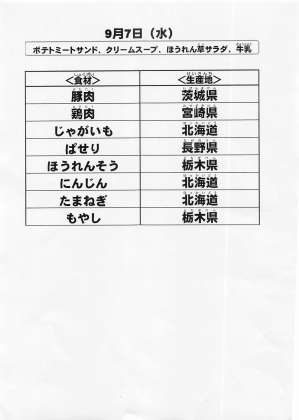 9月7日（水）
ポテトミートサンド、クリームスープ、ほうれん草サラダ、牛乳
＜食材＞ ＜生産地＞
豚肉 茨城県
鶏肉 宮崎県
じゃがいも 北海道
ぱせり 長野県
ほうれんそう 栃木県
にんじん 北海道
たまねぎ 北海道
もやし 栃木県